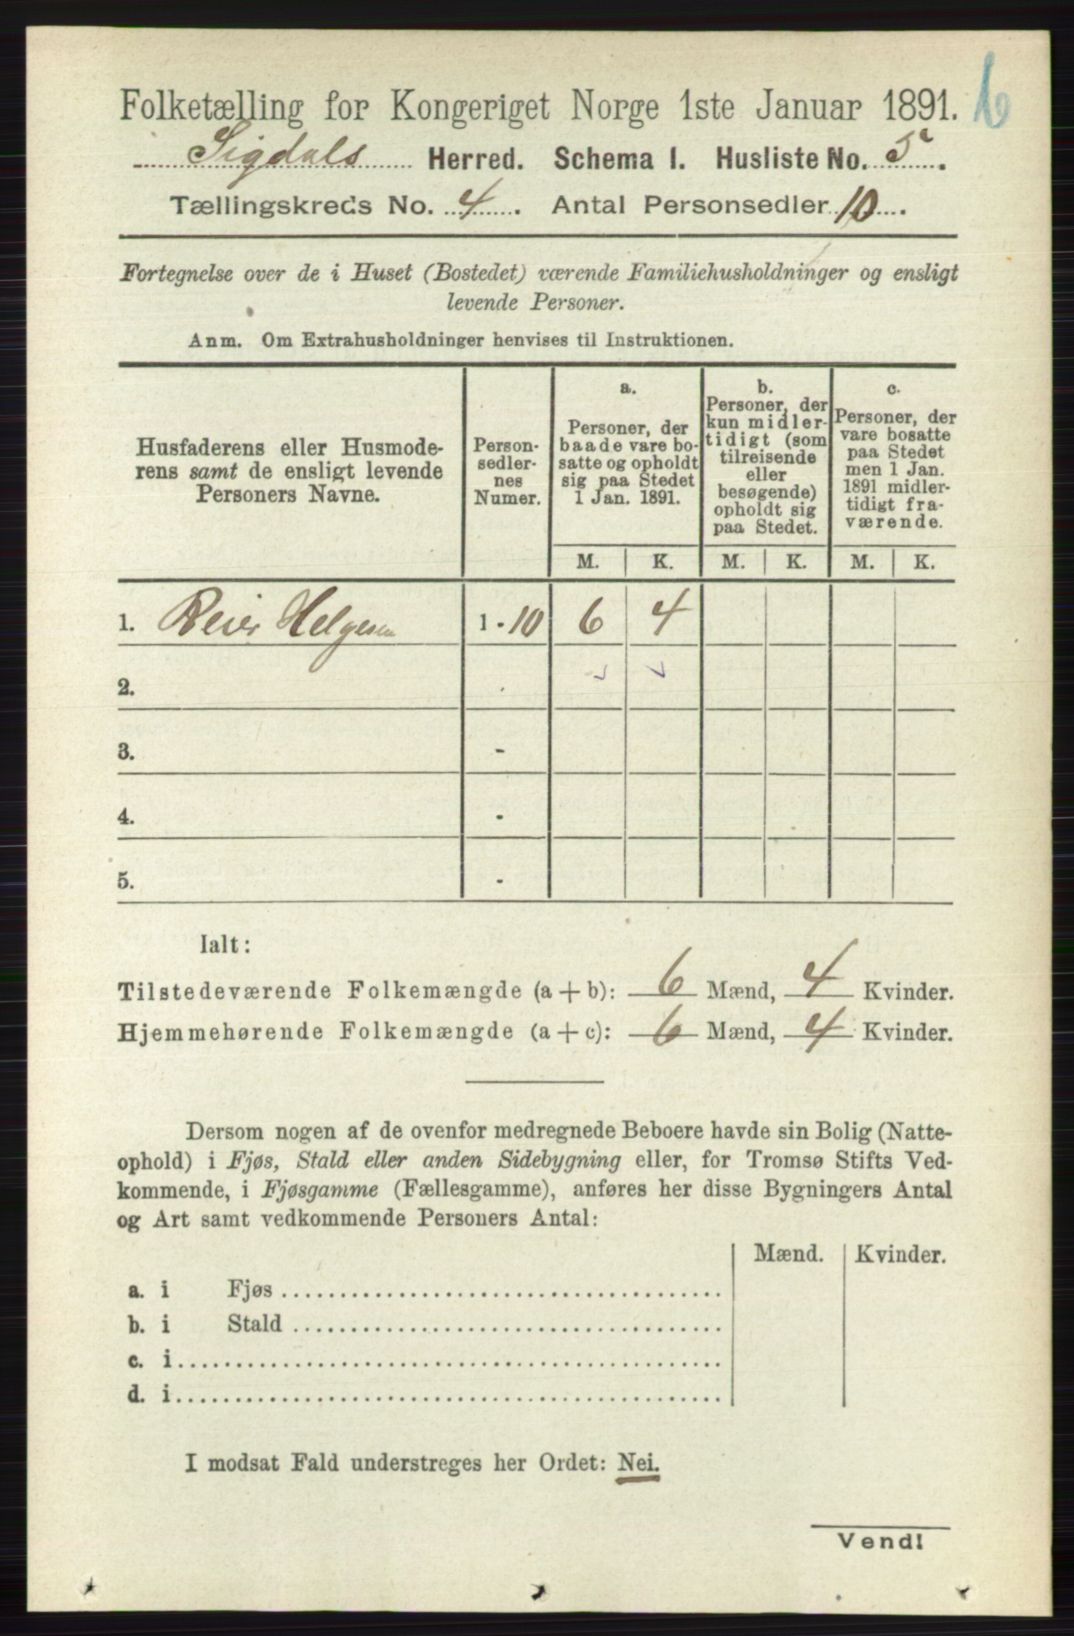 Folketælling for Kongeriget Norge 1ste Januar 1891.
6
Sigdals Herred. Schema I. Husliste No. 5.
Tællingskreds No. 4. Antal Personsedler 10.
Fortegnelse over de i Huset (Bostedet) værende Familiehusholdninger og ensligt
levende Personer.
Anm. Om Extrahusholdninger henvises til Instruktionen.
Husfaderens eller Husmode-
rens samt de ensligt levende
Personers Navne.
Person-
sedler-
nes
Numer.
a.
Personer, der
baade vare bo-
satte og opholdt
sig paa Stedet
1 Jan. 1891.
b.
Personer, der
kun midler-
tidigt (som
tilreisende
eller
besøgende)
opholdt sig
paa Stedet.
c.
Personer, der
vare bosatte
paa Stedet
men 1 Jan.
1891 midler-
tidigt fra-
værende.
M. K. M. K. M. K.
1. Reier Helgesen 1 - 10 6 4
2.
3. -
4. -
5. -
Ialt:
Tilstedeværende Folkemængde (a + b): 6 Mænd, 4 Kvinder.
Hjemmehørende Folkemængde (a + c): 6 Mænd, 4 Kvinder.
Dersom nogen af de ovenfor medregnede Beboere havde sin Bolig (Natte-
ophold) i Fjøs, Stald eller anden Sidebygning eller, for Tromsø Stifts Ved-
kommende, i Fjøsgamme (Fællesgamme), anføres her disse Bygningers Antal
og Art samt vedkommende Personers Antal:
Mænd. Kvinder.
a. i Fjøs
b. i Stald
c. i
d. i
I modsat Fald understreges her Ordet: Nei.
Vend!